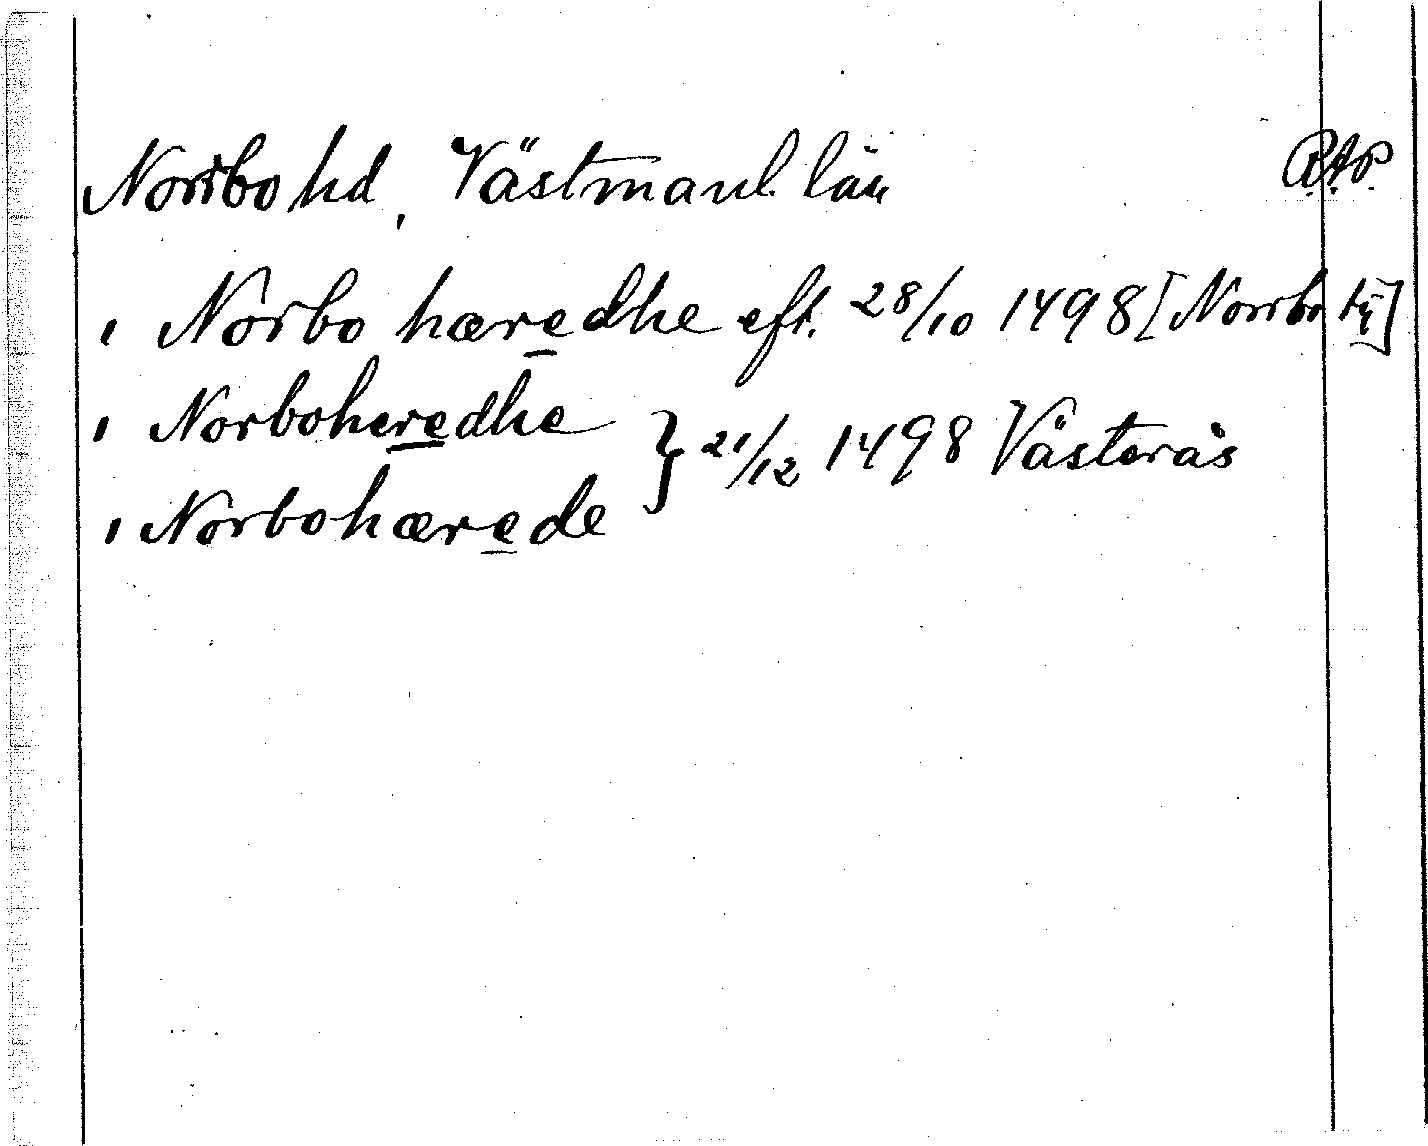 Norrbo hd, Västmanl. län R.A.P.
i Norbo hæredhe eft. 28/10 1498 [Norrbo ti]
i Norboheredhe
} 21/12 1498 Västerås
i Norbohærede